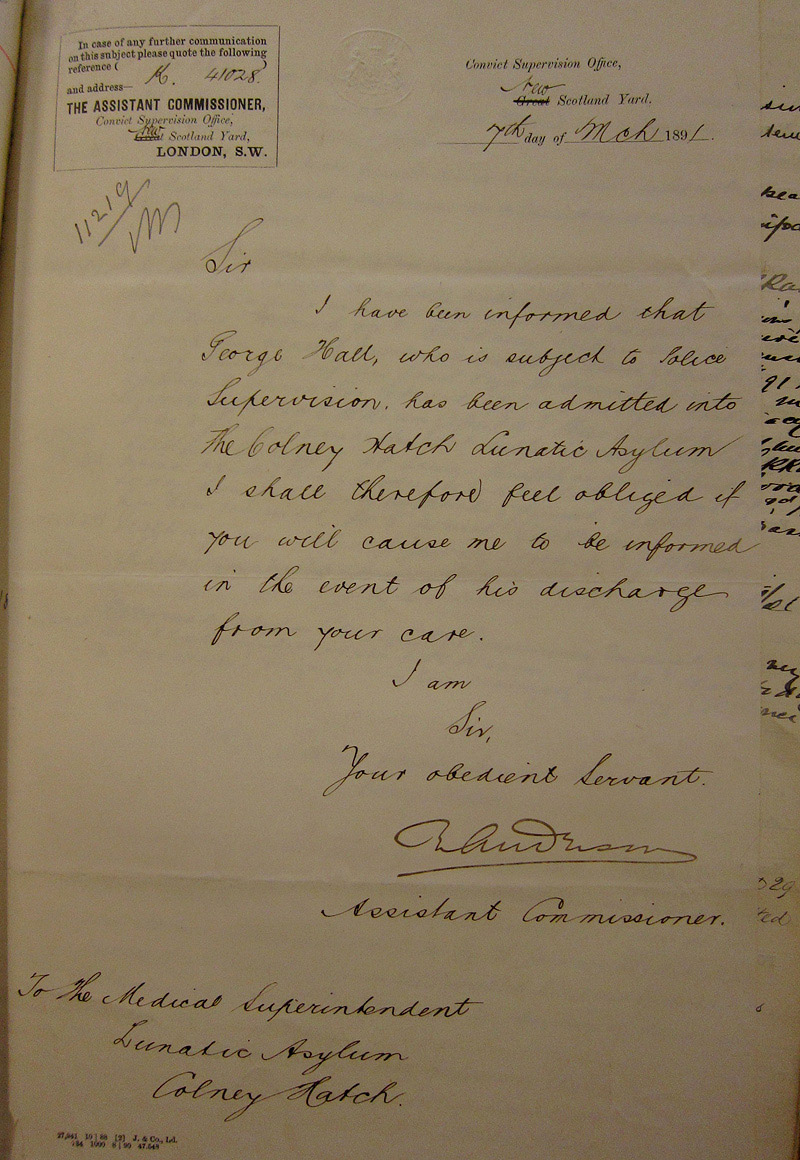 In case of any further communication
on this subject please quote the following
reference ( K. 41028. )
and address—
THE ASSISTANT COMMISSIONER,
Convict Supervision Office,
New
Great Scotland Yard,
LONDON, S.W.
Convict Supervision Office,
New
Great Scotland Yard.
7th day of Mch 1891.
11219
Sir
I have been informed that
George Hall, who is subject to Police
Supervision, has been admitted into
The Colney Hatch Lunatic Asylum
I shall therefore feel obliged if
you will cause me to be informed
in the event of his discharge
from your care.
I am
Sir,
Your obedient Servant.
R Anderson
Assistant Commissioner.
To The Medical Superintendent
Lunatic Asylum
Colney Hatch.
27,941 10 | 88 [2] J. & Co., Ld.
1000 8 | 90 47,548